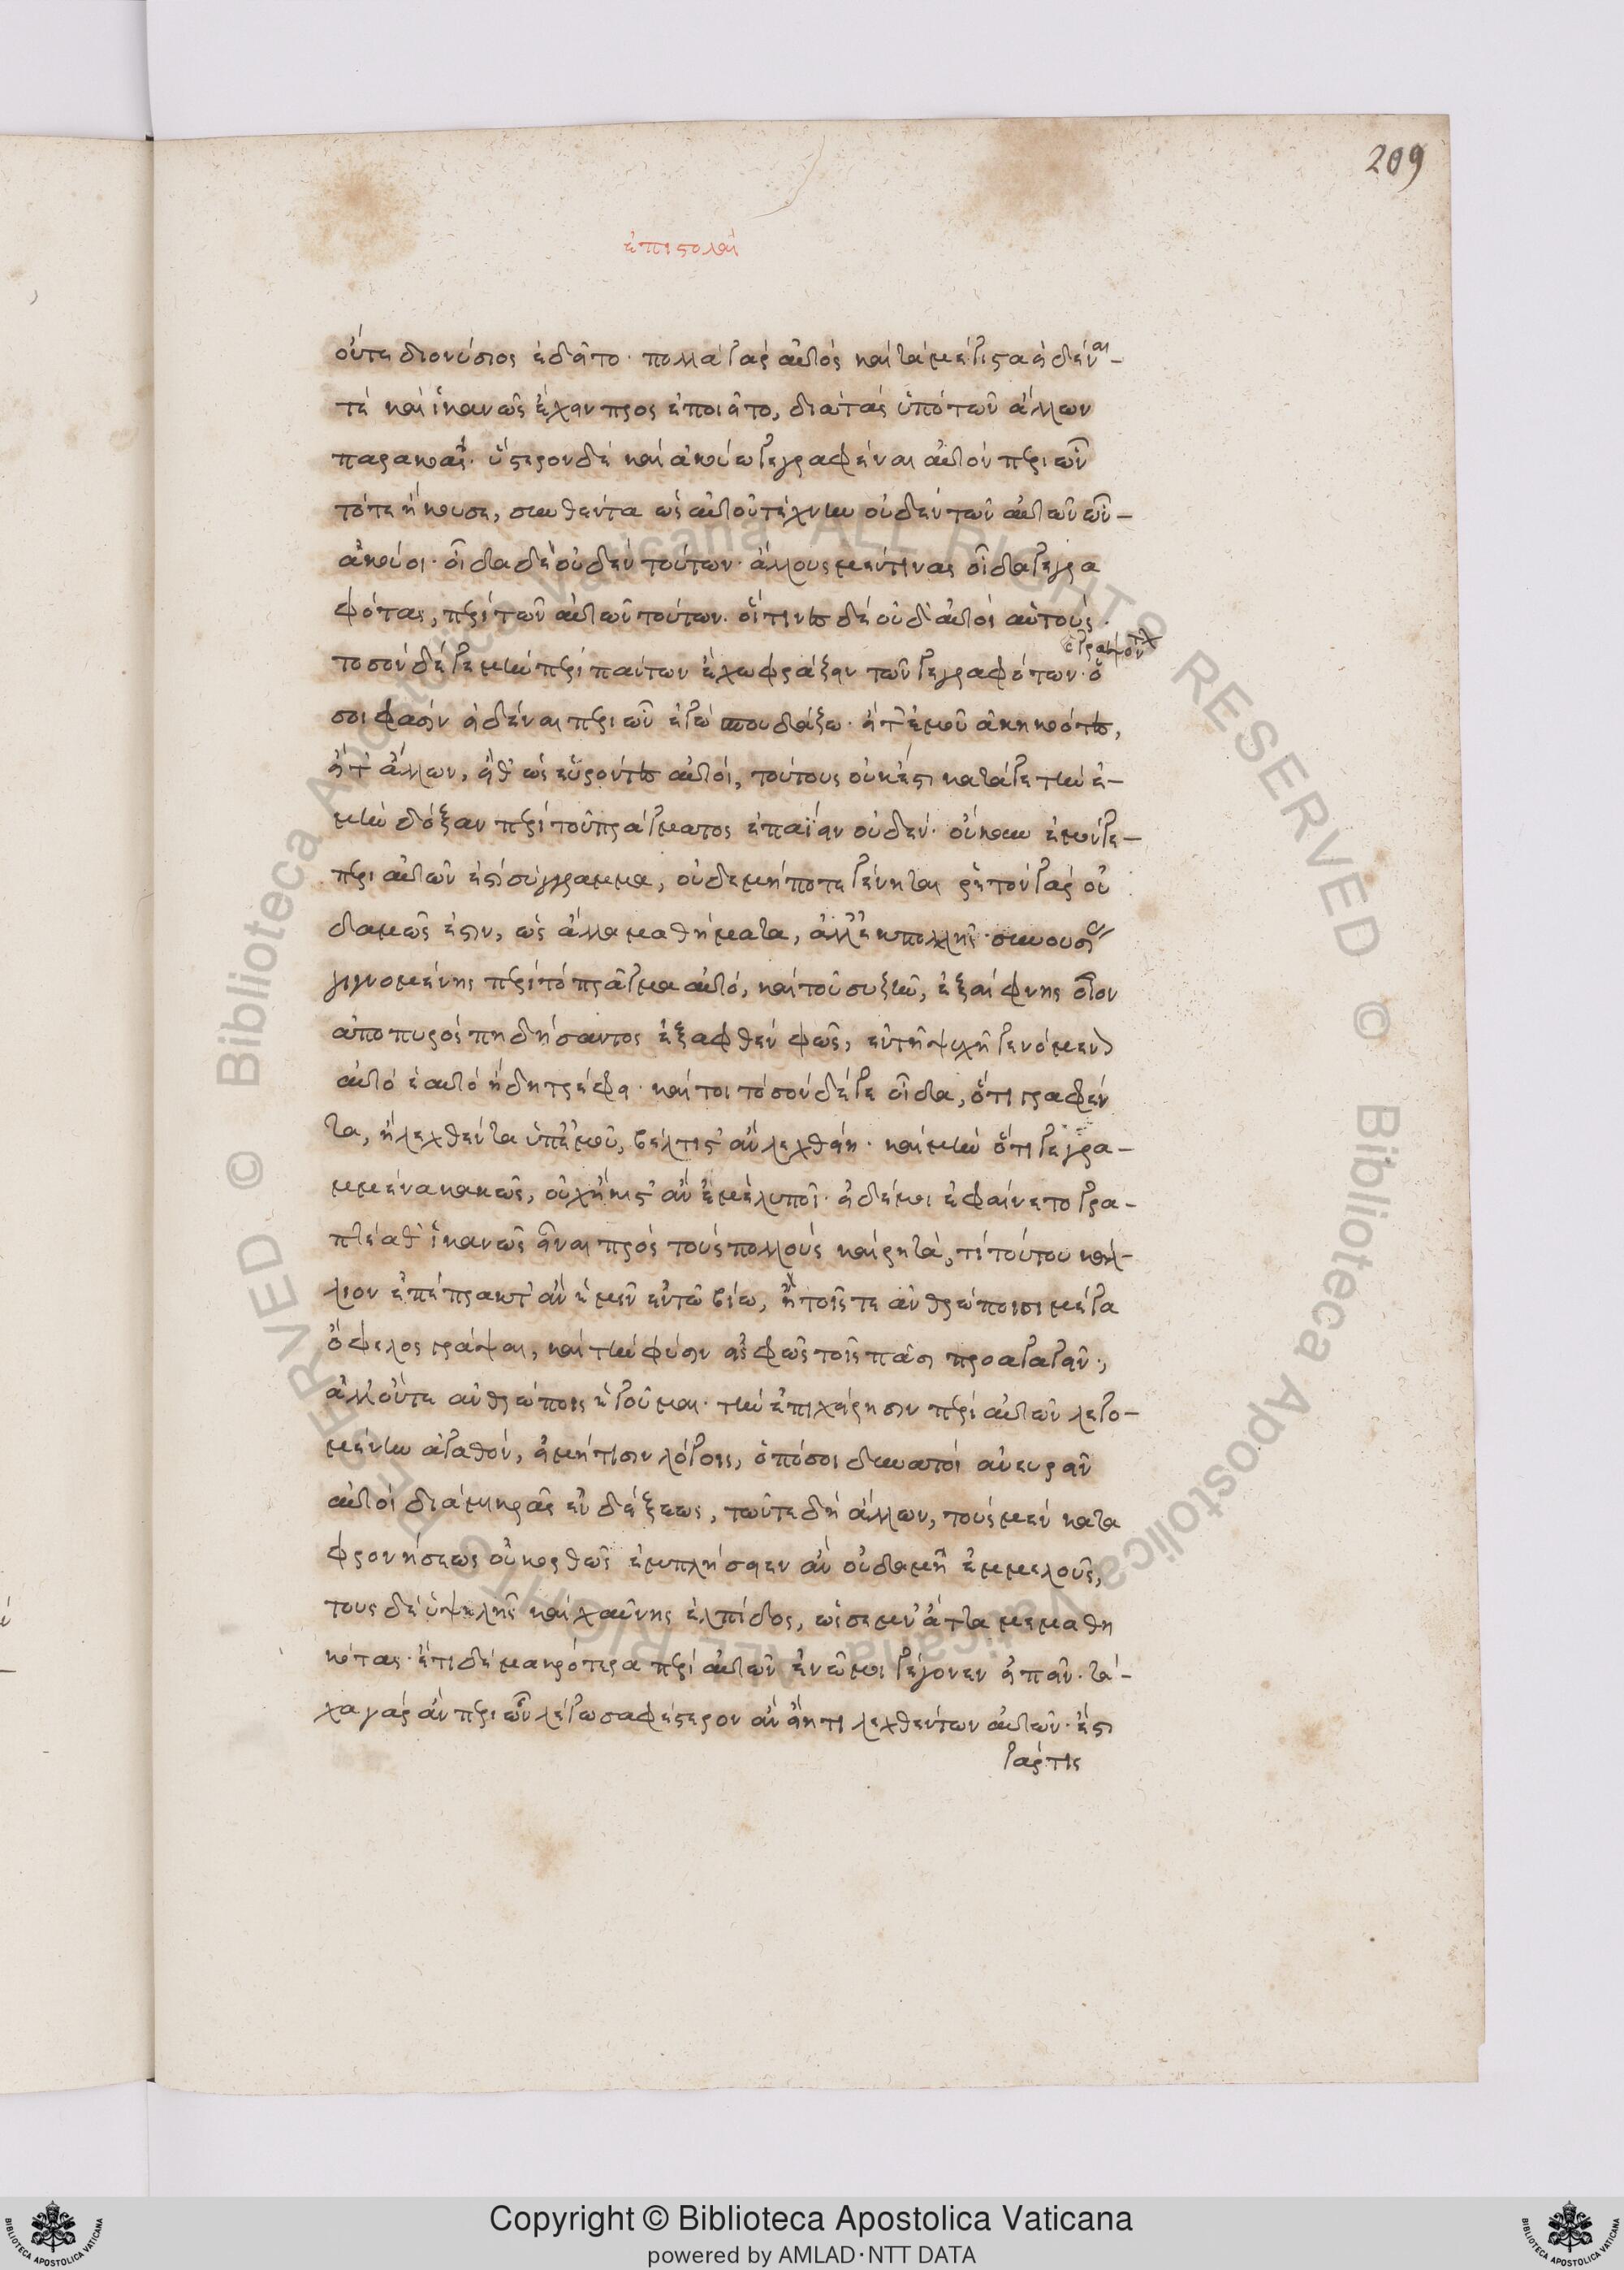 209
ἐπιστολαὶ
οὔτε διονύσιος ἐδεῖτο· πολλὰ γὰρ αὐτὸς καὶ τὰ μέγιστα εἰδέναι
τὲ καὶ ἱκανῶς ἔχειν προσεποιεῖτο, διὰ τὰς ὑπὸ τῶν ἄλλων
παρακοάς· ὕστερον δὲ καὶ ἀκούω γεγραφέναι αὐτὸν περὶ ὧν
τότε ἤκουσε, συνθέντα ὡς αὑτοῦ τέχνην οὐδὲν τῶν αὐτῶν ὧν
ἀκούοι· οἶδα δὲ οὐδὲν τούτων· ἄλλους μέν τινας οἶδα γεγρα
φότας, περὶ τῶν αὐτῶν τούτων. οἵτινες δὲ οὐδ' αὐτοὶ αὑτούς·
τοσόνδε γε μὴν περὶ πάντων ἔχω φράζειν τῶν γεγραφότων·
ὅ
σοι φασὶν εἰδέναι περὶ ὧν ἐγὼ σπουδάζω· εἴτ' ἐμοῦ ἀκηκοότες,
εἴτ' ἄλλων, εἴθ' ὡς εὑρόντες αὐτοί, τούτους οὐκ ἔστι κατά γε τὴν ἐ-
μὴν δόξαν περὶ τοῦ πράγματος ἐπαΐειν οὐδέν· οὔκουν ἐμόν γε
περὶ αὐτῶν ἐστὶ σύγγραμμα, οὐδὲ μήποτε γένηται ῥητὸν γὰρ οὐ
δαμῶς ἐστὶν, ὡς ἄλλα μαθήματα, ἀλλ' ἐκ πολλῆς συνουσίας
γιγνομένης περὶ τὸ πρᾶγμα αὐτό, καὶ τοῦ συζῆν, ἐξαίφνης οἷον
ἀπο πυρὸς πηδήσαντος ἐξαφθὲν φῶς, ἐν τῇ ψυχῇ γενόμενον
αὐτὸ ἑαυτὸ ἤδη τρέφει· καίτοι τοσόνδε γε οἶδα, ὅτι γραφέν
τα, ἢ λεχθέντα ὑπ' ἐμοῦ, βέλτιστ' ἂν λεχθείη· καὶ μὴν ὅτι γεγρα-
μμένα κακῶς, οὐχ ἥκιστ' ἂν ἐμὲ λυποῖ· εἰ δέ μοι ἐφαίνετο γρα-
πτέα θ' ἱκανῶς εἶναι πρὸς τοὺς πολλοὺς καὶ ῥητά, τί τούτου κάλ-
λιον ἐπέπρακτ' ἂν ἡμῖν ἐν τῷ βίῳ, ἢ τοῖς τε ἀνθρώποισι μέγα
ὄφελος γράψαι, καὶ τὴν φύσιν εἰς φῶς τοῖς πᾶσι προαγαγεῖν·,
ἀλλ' οὔτε ἀνθρώποις ἡγοῦμαι τὴν ἐπιχείρησιν περὶ αὐτῶν λεγο-
μένην ἀγαθόν, εἰ μή τισιν λόγοις, ὁπόσοι δυνατοὶ ἀνευρεῖν
αὐτοὶ διὰ μικρᾶς ἐνδείξεως, τῶν τε δὴ ἄλλων, τοὺς μὲν κατα
φρονήσεως οὐκ ὀρθῶς ἐμπλήσειεν ἂν οὐδαμῇ ἐμμελοῦς,
τους δὲ ὑψηλῆς καὶ χαύνης ἐλπίδος, ὡς σέμν' ἄττα μεμαθη
κότας· ἔτι δὲ μακρότερα περὶ αὐτῶν ἐν νῷ μοι γέγονεν εἰπεῖν· τά-
χα γὰρ ἂν περὶ ὧν λέγω σαφέστερον ἂν εἴη τι λεχθέντων αὐτῶν· ἔστι
γάρ τις